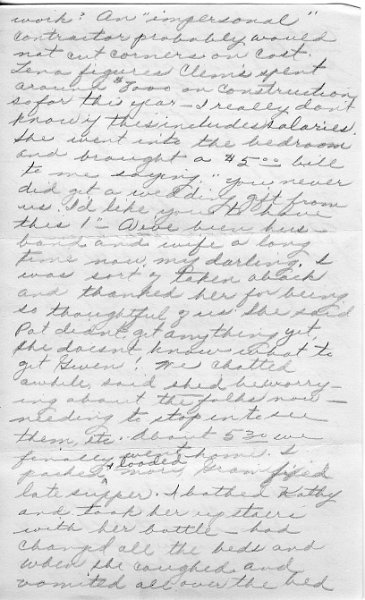 work? An "impersonal"
contractor probably would
not cut corners on cost.
Lena figures Clem's spent
around $3000 on construction
so far this year - I really don't
know if this includes salaries.
She went into the bedroom
and brought a $5.00 bill
to me saying, "you never
did get a wedding gift from
us. I'd like you to have
this!" - We've been hus-
band and wife a long
time now, my darling. I
was sort of taken aback
and thanked her for being
so thoughtful of us. She said
Pat didn't get anything yet,
she doesn't know what to
get Gwen! We chatted
awhile, said she'd be worry-
ing about the folks now -
needing to stop in to see
them, etc. About 530 we
finally went home. I
packed + loaded more, Gram fixed
late supper. I bathed Kathy
and took her upstairs
with her bottle - had
changed all the beds and
when she coughed and
vomited all over the bed